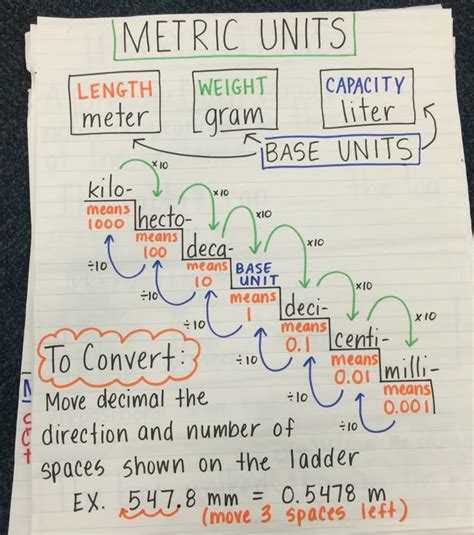 METRIC UNITS
LENGTH
meter
WEIGHT
gram
CAPACITY
liter
BASE UNITS
kilo-
means
1000
x10
hecto-
means
100
x10
÷10
deca-
means
10
x10
÷10
BASE
UNIT
means
1
x10
÷10
deci-
means
0.1
x10
÷10
centi-
means
0.01
x10
÷10
milli-
means
0.001
÷10
To Convert:
Move decimal the
direction and number of
spaces shown on the ladder
EX. 547.8 mm = 0.5478 m
(move 3 spaces left)